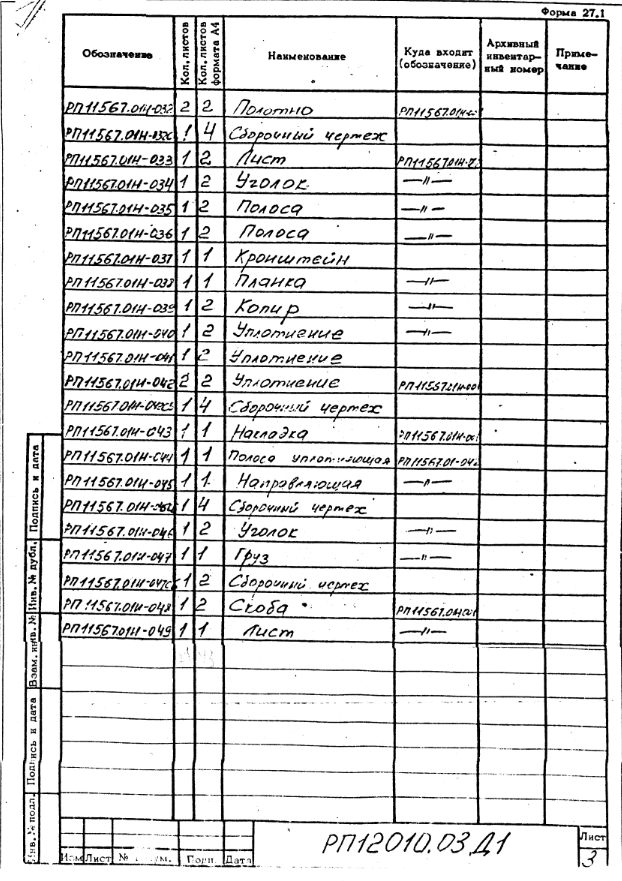 Форма 27.1
Обозначение Кол. листов Кол. листов формата А4 Наименование Куда входит (обозначение) Архивный инвентарный номер Примечание
РП11567.01Н-032 2 2 Полотно
1 4 Сборочный чертеж
РП11567.01Н-033 1 2 Лист
РП11567.01Н-034 1 2 Уголок —〃—
РП11567.01Н-035 1 2 Полоса —〃—
РП11567.01Н-036 1 2 Полоса —〃—
РП11567.01Н-037 1 1 Кронштейн
РП11567.01Н-038 1 1 Планка —〃—
РП11567.01Н-039 1 2 Копир —〃—
РП11567.01Н-040 1 2 Уплотнение —〃—
РП11567.01Н-041 1 2 Уплотнение
РП11567.01Н-042 2 2 Уплотнение
1 4 Сборочный чертеж
РП11567.01Н-043 1 1 Накладка
РП11567.01Н-044 1 1 Полоса уплотняющая
РП11567.01Н-045 1 1 Направляющая —〃—
1 4 Сборочный чертеж
РП11567.01Н-046 1 2 Уголок —〃—
РП11567.01Н-047 1 1 Груз —〃—
1 2 Сборочный чертеж
РП11567.01Н-048 1 2 Скоба
РП11567.01Н-049 1 1 Лист —〃—
Подпись и дата
Инв. № дубл.
Взам. инв. №
Подпись и дата
Инв. № подл.
Изм Лист № Подп. Дата
РП12010.03 Д1
Лист
3